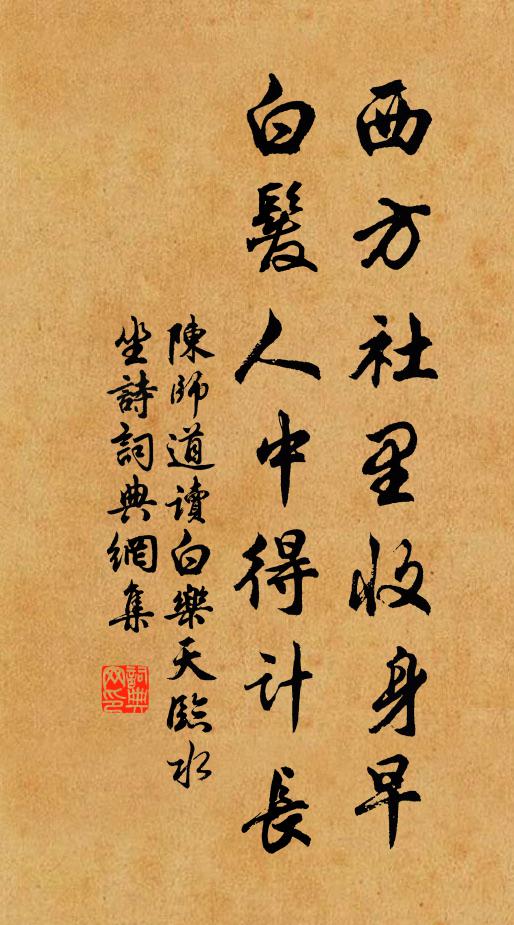 西方社里收身早
白髮人中得計長
陳師道讀白樂天臨水
坐詩詞典網集
詞典
网印